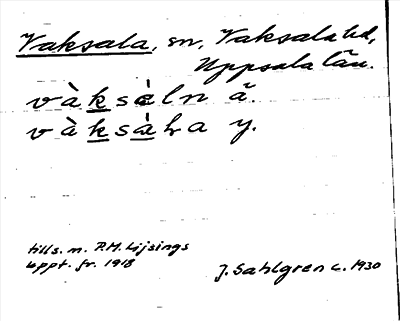 Vaksala, sn, Vaksala hd,
Uppsala län.
vàksàln ä.
vàksàha y.
tills. m. P.M. Lijsings
uppt. fr. 1918
J. Sahlgren c. 1930